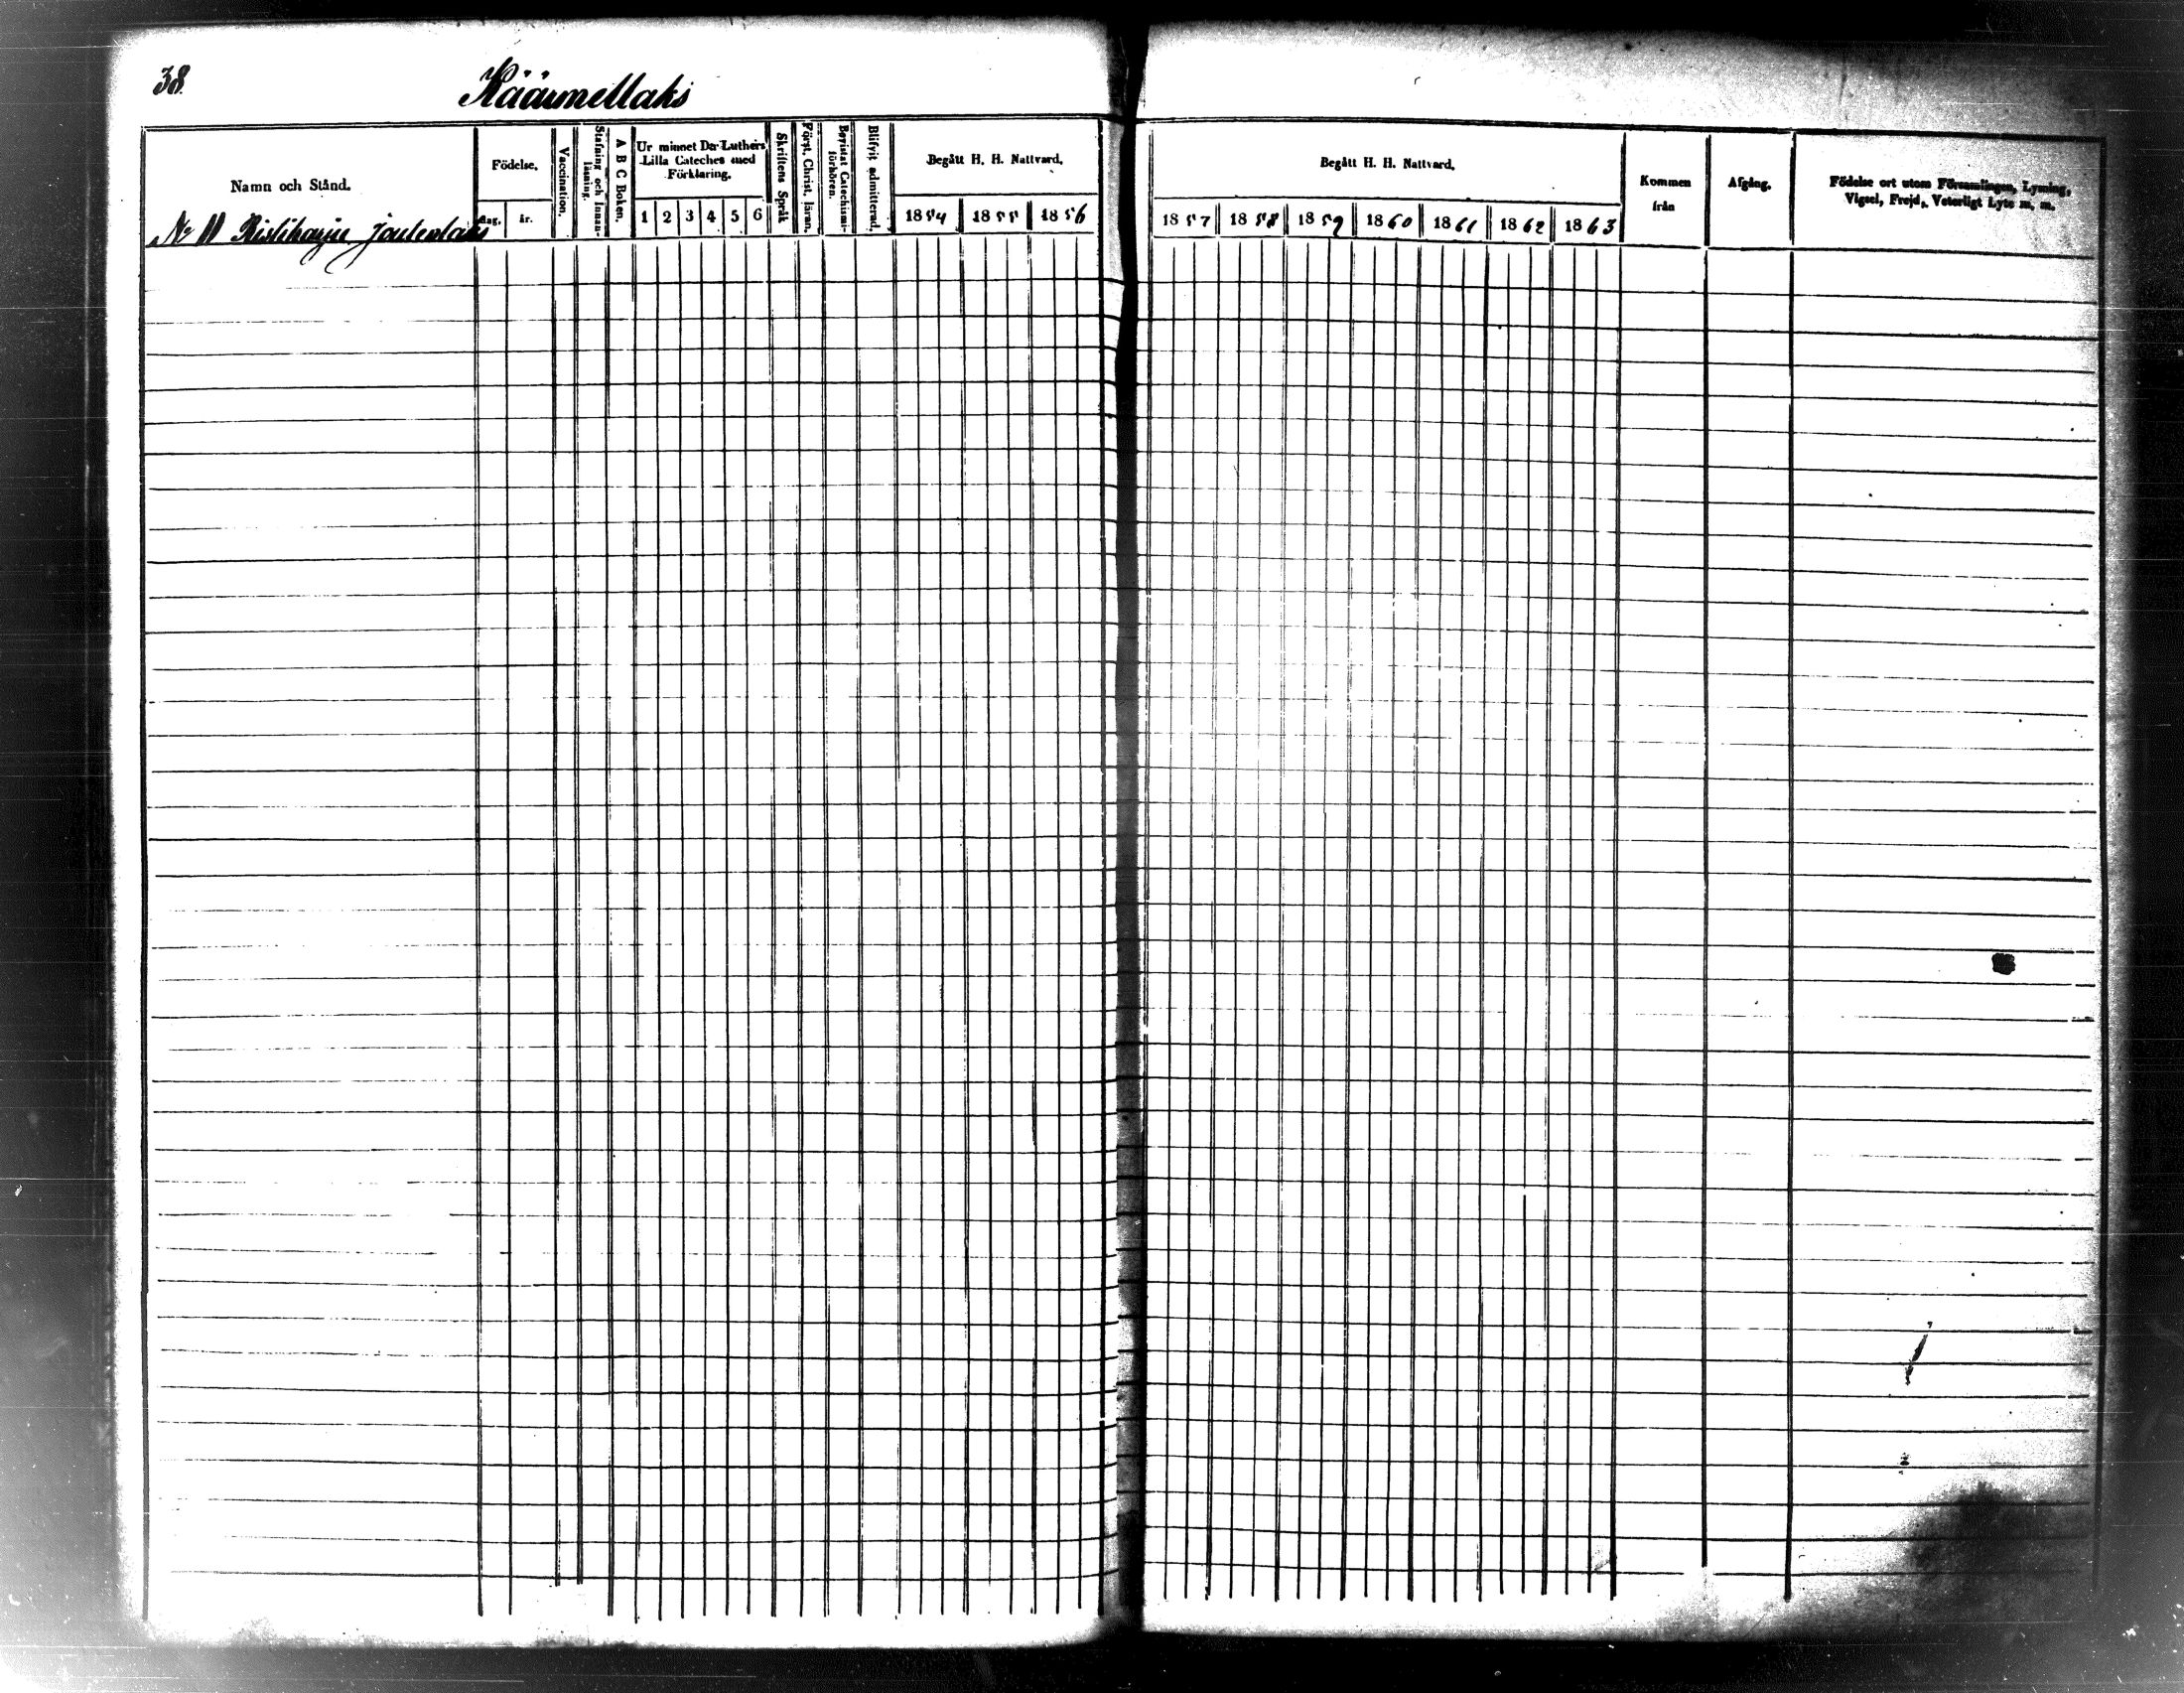 38.
Käärmellaks
Namn och Stånd.
Födelse.
dag.
år.
Vaccination.
Stafning och Innan-
läsning.
A B C Boken.
Ur minnet D:r Luthers
Lilla Cateches med
Förklaring.
1 2 3 4 5 6
Skriftens Språk
Förgt. Christ. läran.
Bevistat Catechismi-
förhören.
Blifvit admitterad.
Begått H. H. Nattvard.
1854 1855 1856
Begått H. H. Nattvard.
1857 1858 1859 1860 1861 1862 1863
Kommen
från
Afgång.
Födelse ort utom Församlingen, Lysning,
Vigsel, Frejd, Veterligt Lyte m. m.